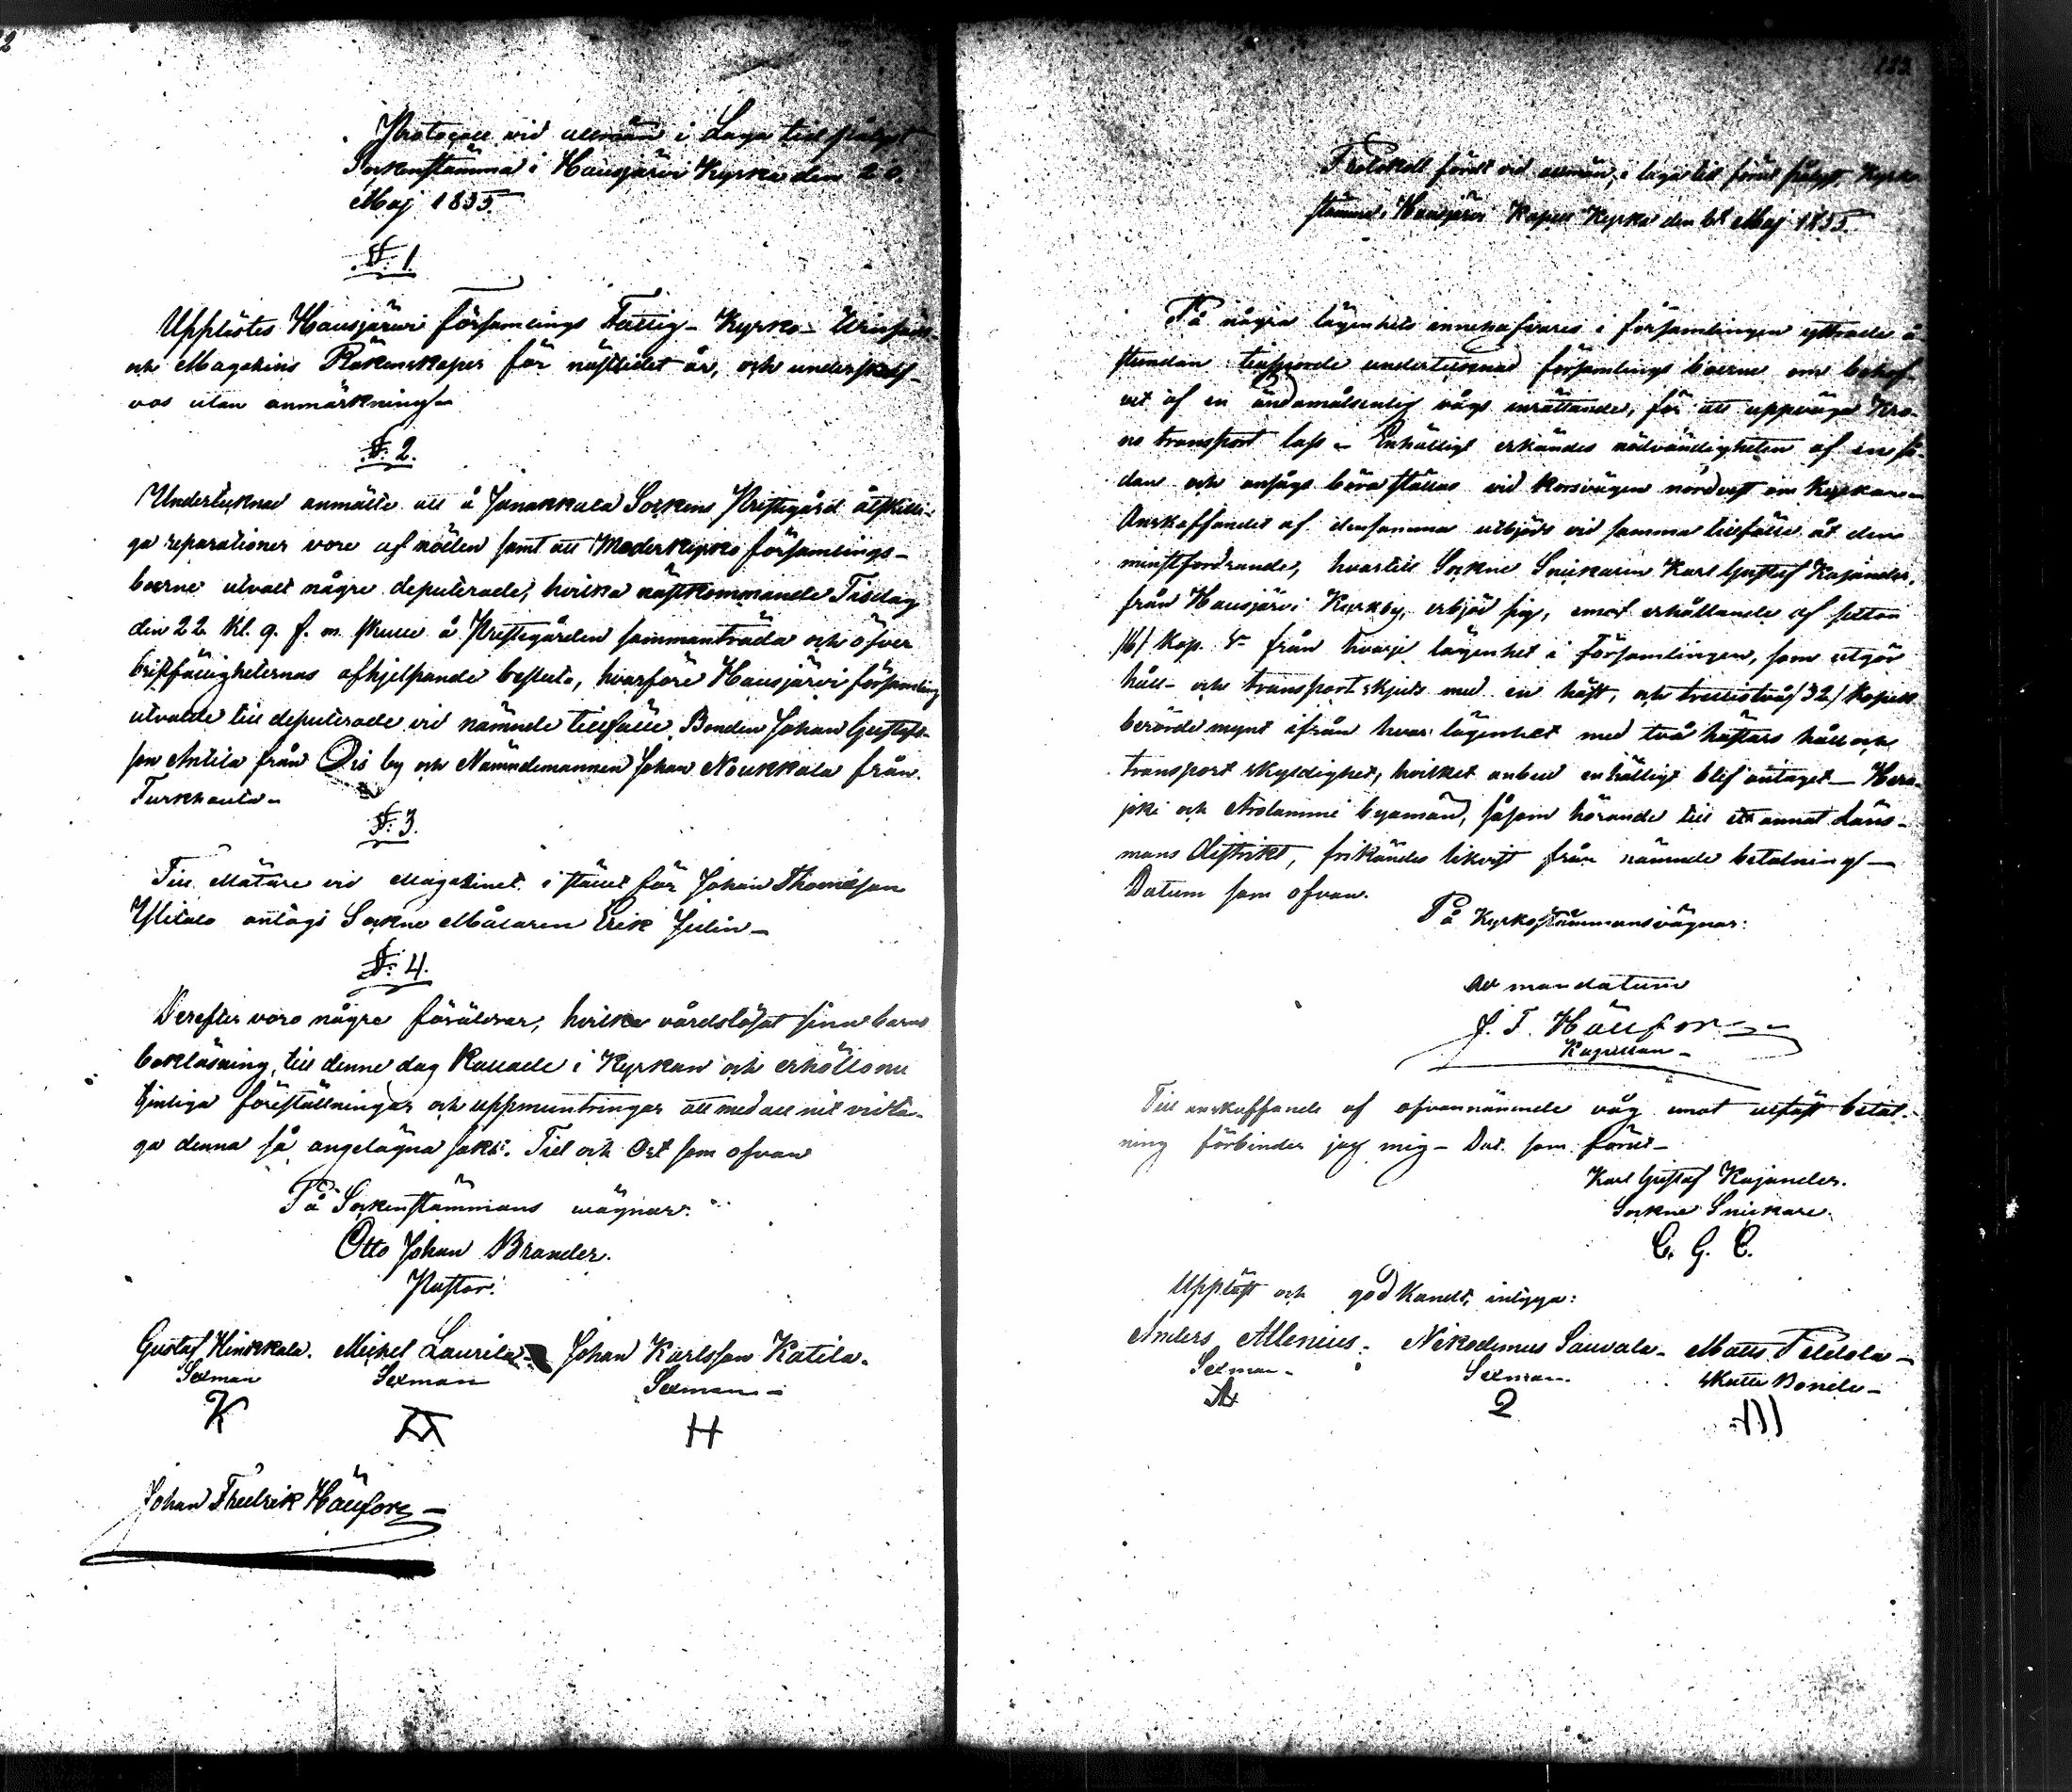 2
Protocoll vid allmän i Laga tid pålyst
Sockenstämma i Hausjärvi Kyrka den 20.
Maj 1855.
§. 1.
Upplästes Hausjärvi församlings Fattig- Kyrko-
och Magasins Räkenskaper för nästlidet år, och underskref-
vos utan anmärkning.-
§. 2.
Undertecknad anmälte att å Janakkala Sockens Prestegård åtskilli-
ga reparationer vore af nöden samt att Moderkyrko församlings-
boerne utvalt några deputerade, hvilka nästkommande Tisdag
den 22 kl. 9. f. m. skulle å Prestegården sammanträda och öfver
bristfälligheternas afhjelpande besluta, hvarföre Hausjärvi församling
utvalde till deputerade vid nämnde tillfälle Bonden Johan Gustafs-
son Antila från Ois by och Nämndemannen Johan Noukkala från
Turkhauta.-
§. 3.
Till Mätare vid Magasinet i stället för Johan Thomasson
Ylitalo antogs Sockne Målaren Erik Julin.-
§. 4.
Derefter voro några föräldrar, hvilka vårdslösat sina barns
bokläsning, till denne dag kallade i Kyrkan och erhöllo nu
tjenliga föreställningar och uppmuntringar att med all nit vidta-
ga denna så angelägna sak. Tid och Ort som ofvan
På Sockenstämmans wägnar:
Otto Johan Brander.
Pastor.
Gustaf Hinkkala. Michel Laurila. Johan Karlsson Katila.
Sexman Sexman Sexman -
K H
Johan Fredrik Hällfors
183
Protokoll fördt vid allmän, i laga tid förut pålyst, Kyrko-
stämma i Hausjärvi Kapell Kyrka den 6te Maj 1855.
På några lägenhets innehafvares i församlingen yttrade å-
stundan tillsporde undertecknad församlings boerne om behof-
vet af en ändamålsenlig vågs inrättande, för att uppväga Kro-
no transport lass - Enhälligt erkändes nödvändigheten af en så-
dan och ansågs böra ställas vid korsvägen nordvest om Kyrkan -
Anskaffandet af densamma utbjöds vid samma tillfälle åt den
minstfordrande, hvartill Sockne Snickaren Karl Gustaf Kajander,
från Hausjärvi Kyrkby, erbjöd sig, emot erhållande af sexton
/16/ Kop. Sr från hvarje lägenhet i Församlingen, som utgör
håll- och transport skjuts med en häst, och trettiotvå /32/ Kopek
berörde mynt ifrån hvar lägenhet med två hästars håll och
transport skyldighet, hvilket anbud enhälligt blef antaget - Hera-
joki och Arolammi byamän, såsom hörande till ett annat Läns-
mans distrikt, frikändes likväl från nämnde betalning -
Datum som ofvan.
På Kyrkostämmans vägnar:
Ad mandatum
J. F. Hällfors
Kapellan -
Till anskaffande af ofvannämnde våg emot utfäst betal-
ning förbinder jag mig - Dat. som förut -
Karl Gustaf Kajander.
Sockne Snickare.
C. G. C.
Uppläst och godkändt, intyga:
Anders Allenius. Nikodemus Sauvala - Matts Peltola -
Sexman - Sexman. Skatte Bonde -